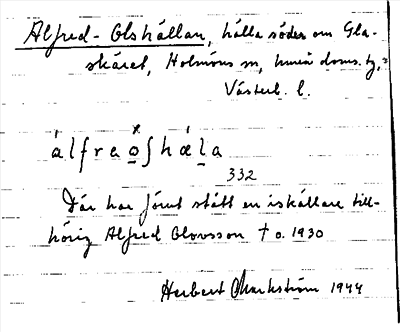 Alfred-Olshällan, hälla söder om Gla-
skäret, Holmöns sn, Umeå doms. tg,
Västerb. l.
álfreo̲ʃhæl̲a
332
Där har förut stått en iskällare till-
hörig Alfred Olovsson † o. 1930
Herbert Markström 1944